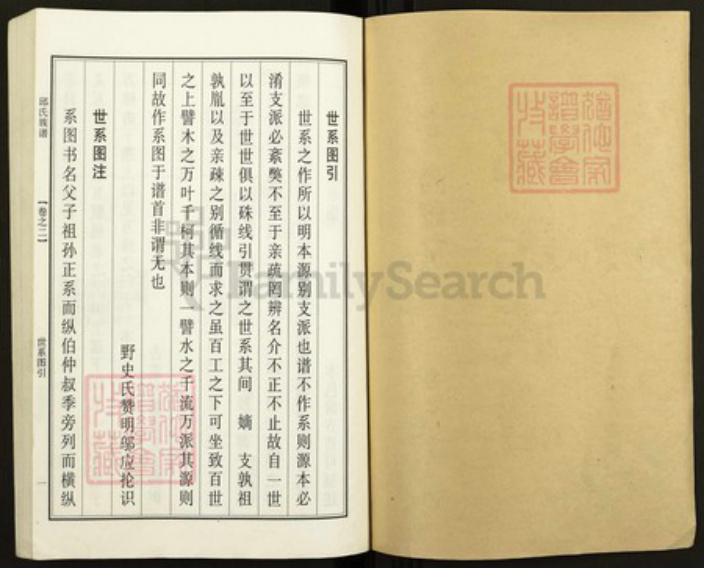 世系图引
世系之作所以明本源别支派也谱不作系则源本必
淆支派必紊弊不至于亲疏罔辨名介不正不止故自一世
以至于世世俱以硃线引贯谓之世系其间 嫡 支孰祖
孰胤以及亲疎之别循线而求之虽百工之下可坐致百世
之上譬木之万叶千柯其本则一譬水之千流万派其源则
同故作系图于谱首非谓无也
野史氏赞明邬应抡识
世系图注
系图书名父子祖孙正系而纵伯仲叔季旁列而横纵
邱氏族谱
【卷之二】
世系图引
一
FamilySearch